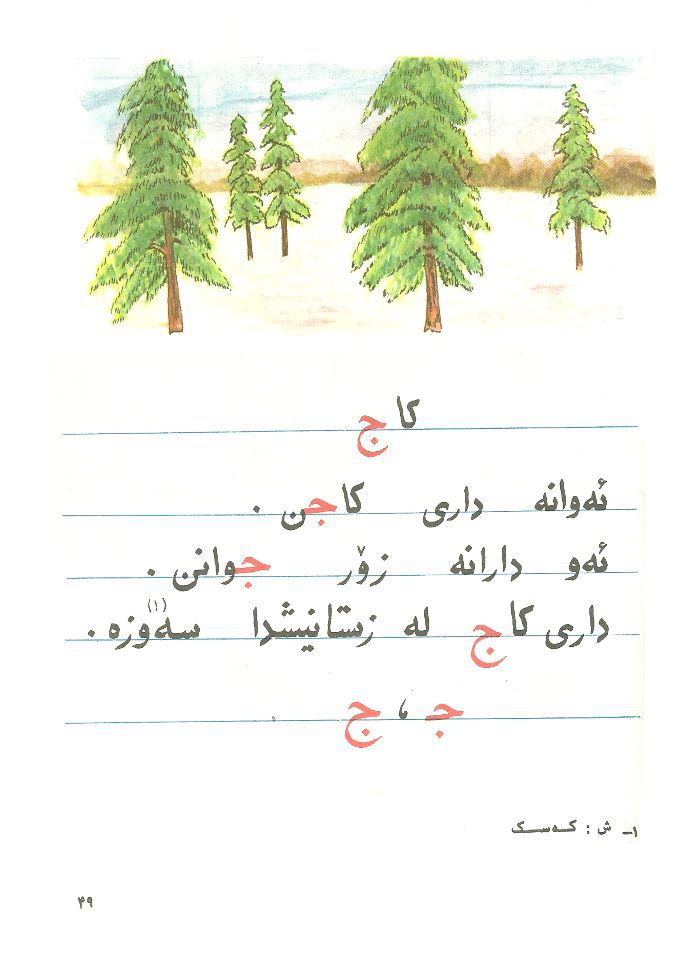 کاج
ئەوانە داری کاجن .
ئەو دارانە زۆر جوانن .
داری کاج لە زستانیشدا سەوزە(۱) .
جـ ، ج
۱ـ ش : کەسک
۴۹